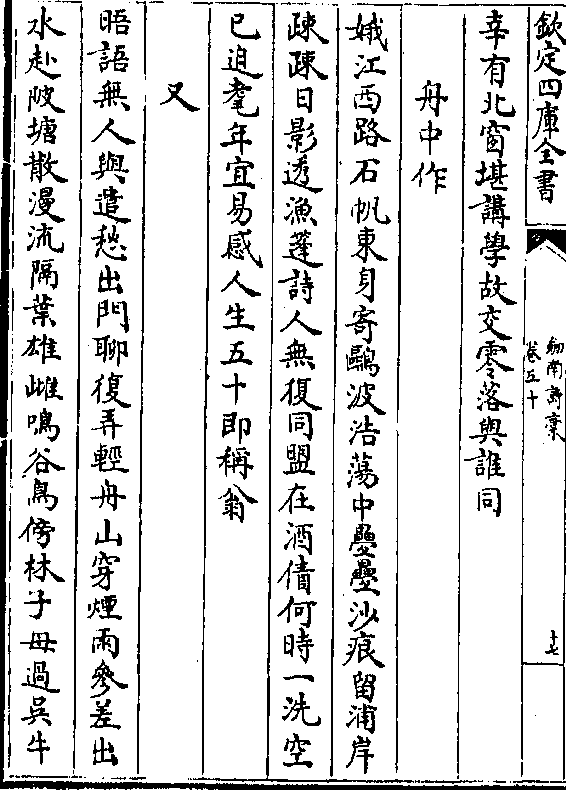 欽定四庫全書
劍南詩稾
卷五十
十七
幸有北窗堪講學故交零落與誰同
舟中作
娥江西路石帆東身寄鷗波浩蕩中疊疊沙痕留浦岸
疎疎日影透漁蓬詩人無復同盟在酒債何時一洗空
已迫耄年宜易感人生五十即稱翁
又
晤語無人與遣愁出門聊復弄輕舟山穿煙雨參差出
水赴陂塘散漫流隔葉雄雌鳴谷鳥傍林子母過吳牛